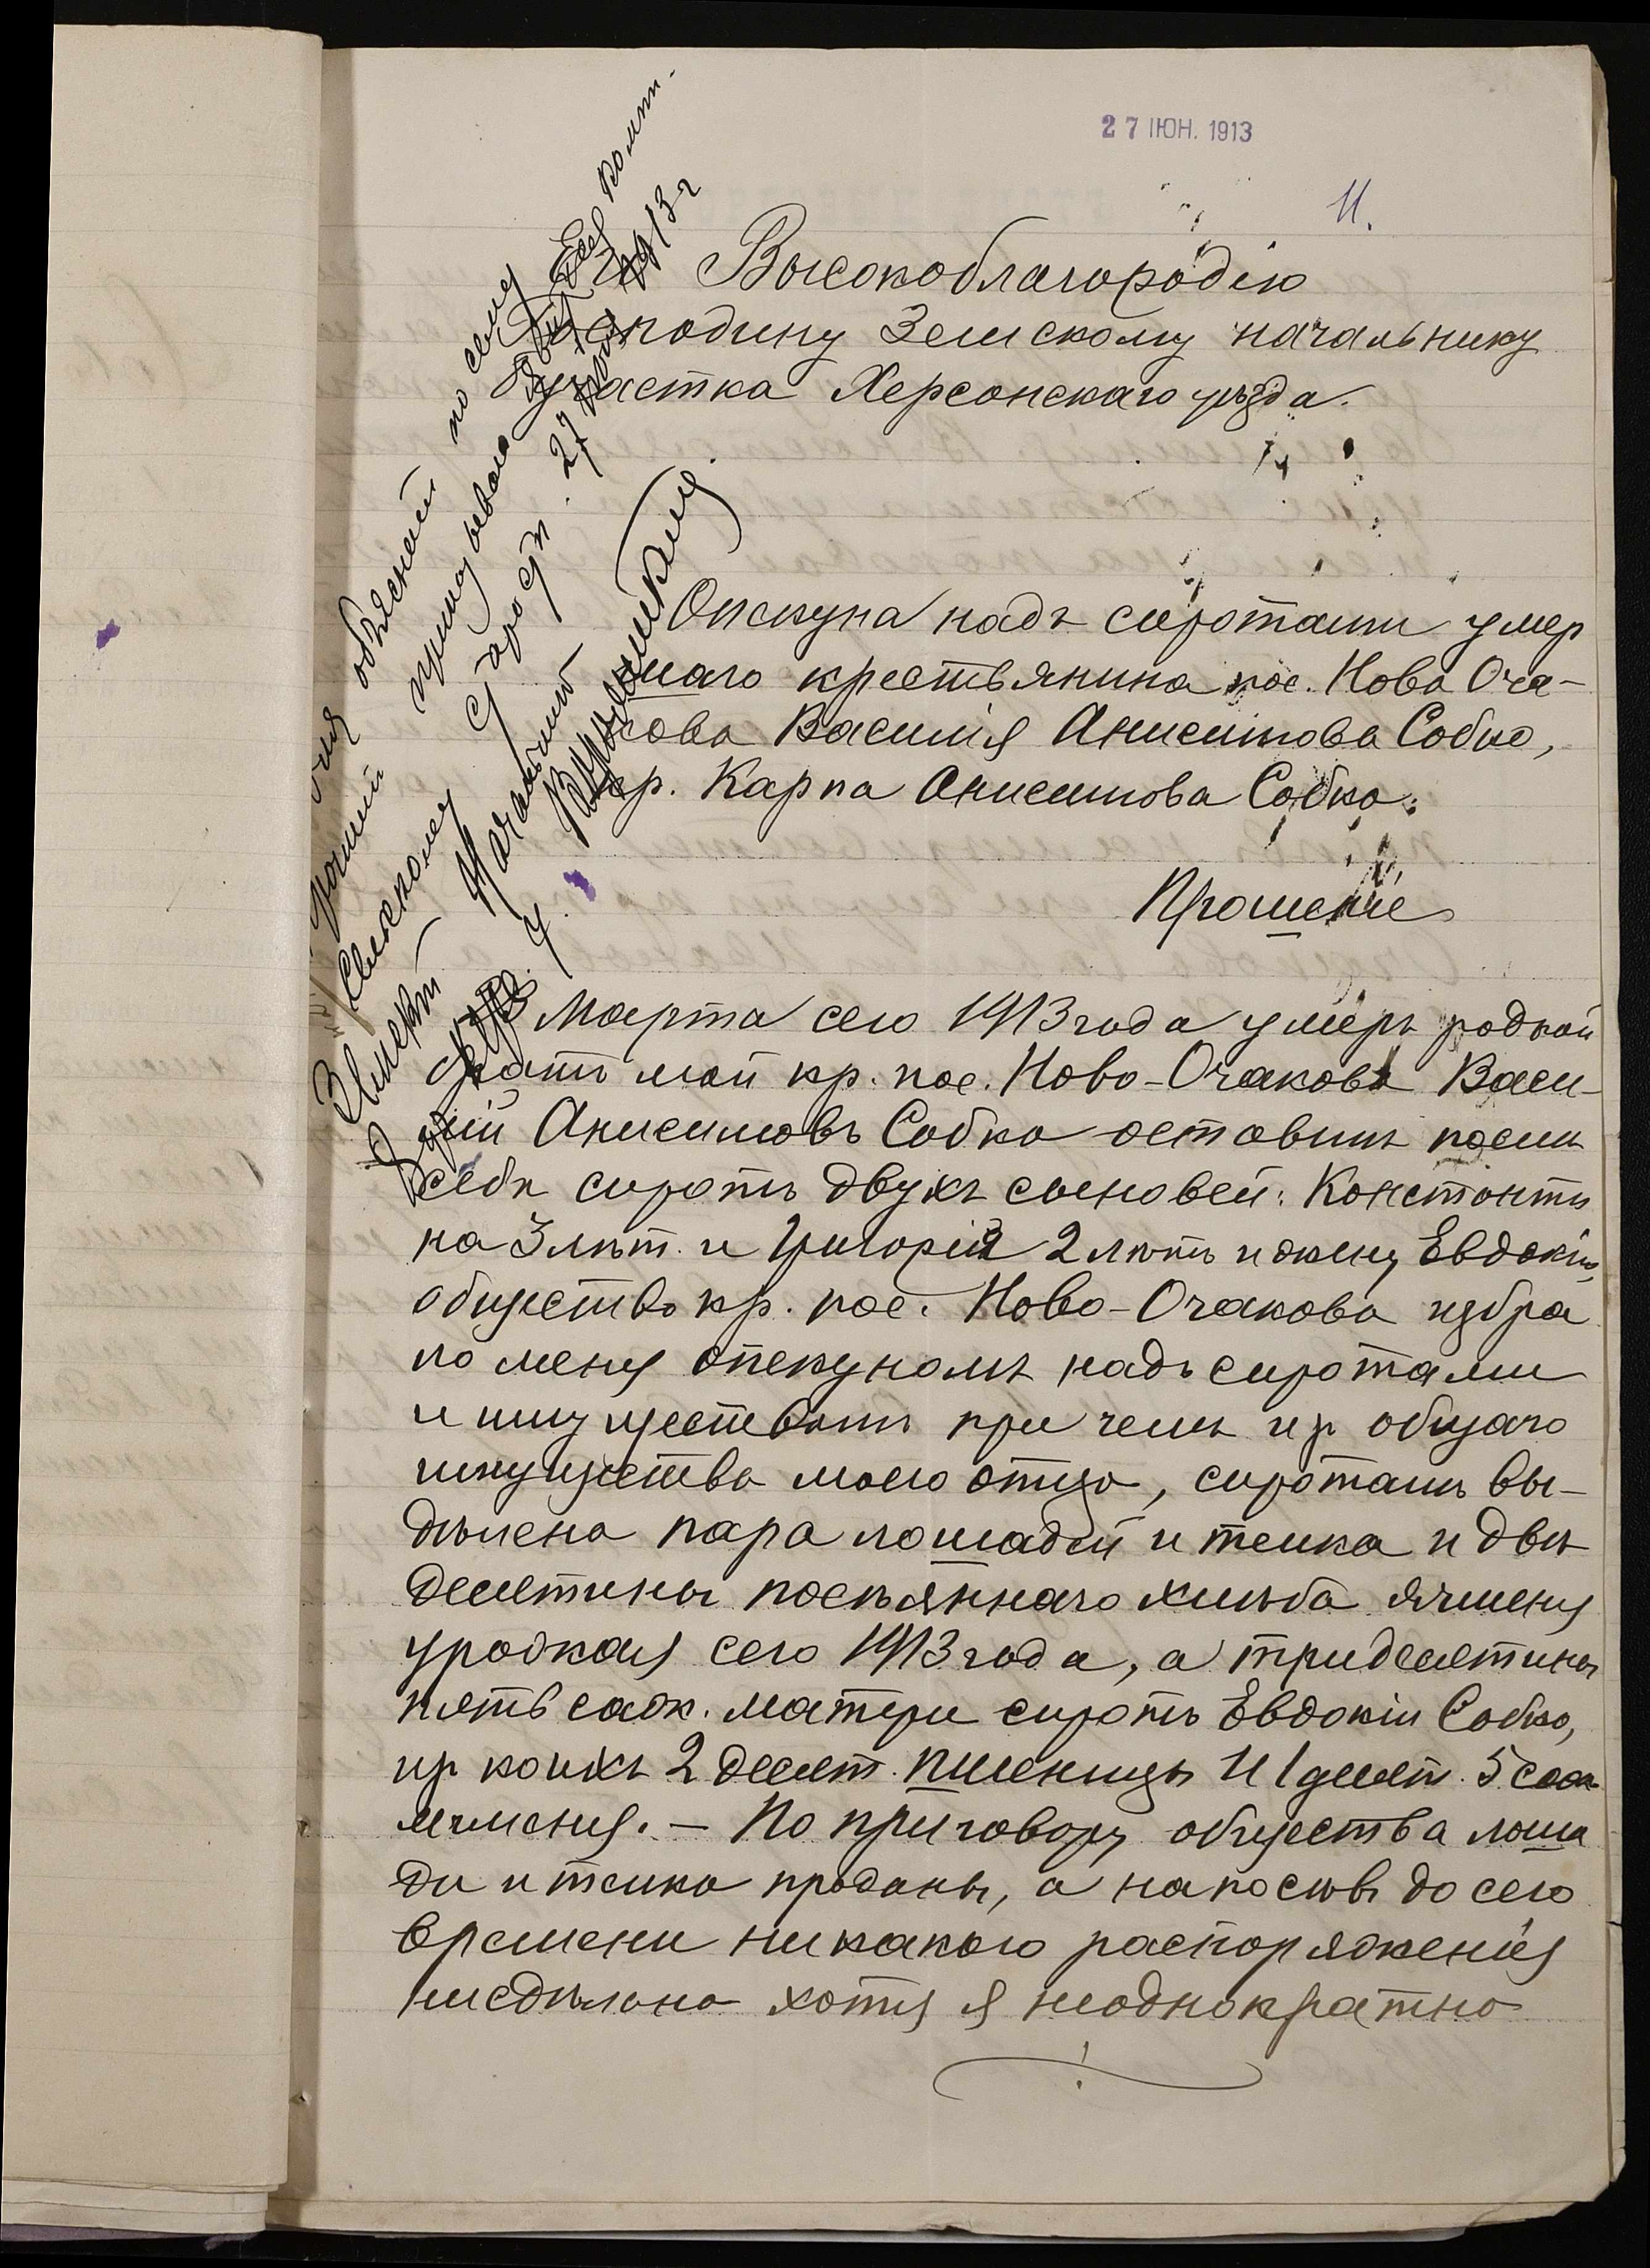 27 ІЮН. 1913
11.
Его Высокоблагородію
Господину Земскому начальнику
участка Херсонскаго уѣзда.
Опекуна надъ сиротами умер
шаго крестьянина пос. Ново Оча-
кова Василія Анисимова Собко,
кр. Карпа Анисимова Собко.
Прошеніе
Марта сего 1913 года умеръ родной
братъ мой кр. пос. Ново-Очакова Васи-
лій Анисимовъ Собко оставивъ посли
себя сиротъ двухъ сыновей: Константи
на 3 лѣт. и Григорія 2 лѣтъ и жену Евдокію,
общество кр. пос. Ново-Очакова избра
ло меня опекуномъ надъ сиротами
и имуществомъ при чемъ из общаго
имущества моего отца, сиротамъ вы-
дѣлена пара лошадей и телка и двѣ
десятины посѣяннаго хлѣба ячменя
урожая сего 1913 года, а три десятины
пять саж. матери сиротъ Евдокіи Собко,
из коихъ 2 десят. пшеницы и 1 десят. 5 саж
ячменя. — По приговору общества лоша
ди и телка проданы, а на посѣвъ до сего
времени никакого распоряженія
не сдѣлано хотя я неоднократно
объясненій по сему
Сельскому Старостѣ. 27
Земскій Начальникъ